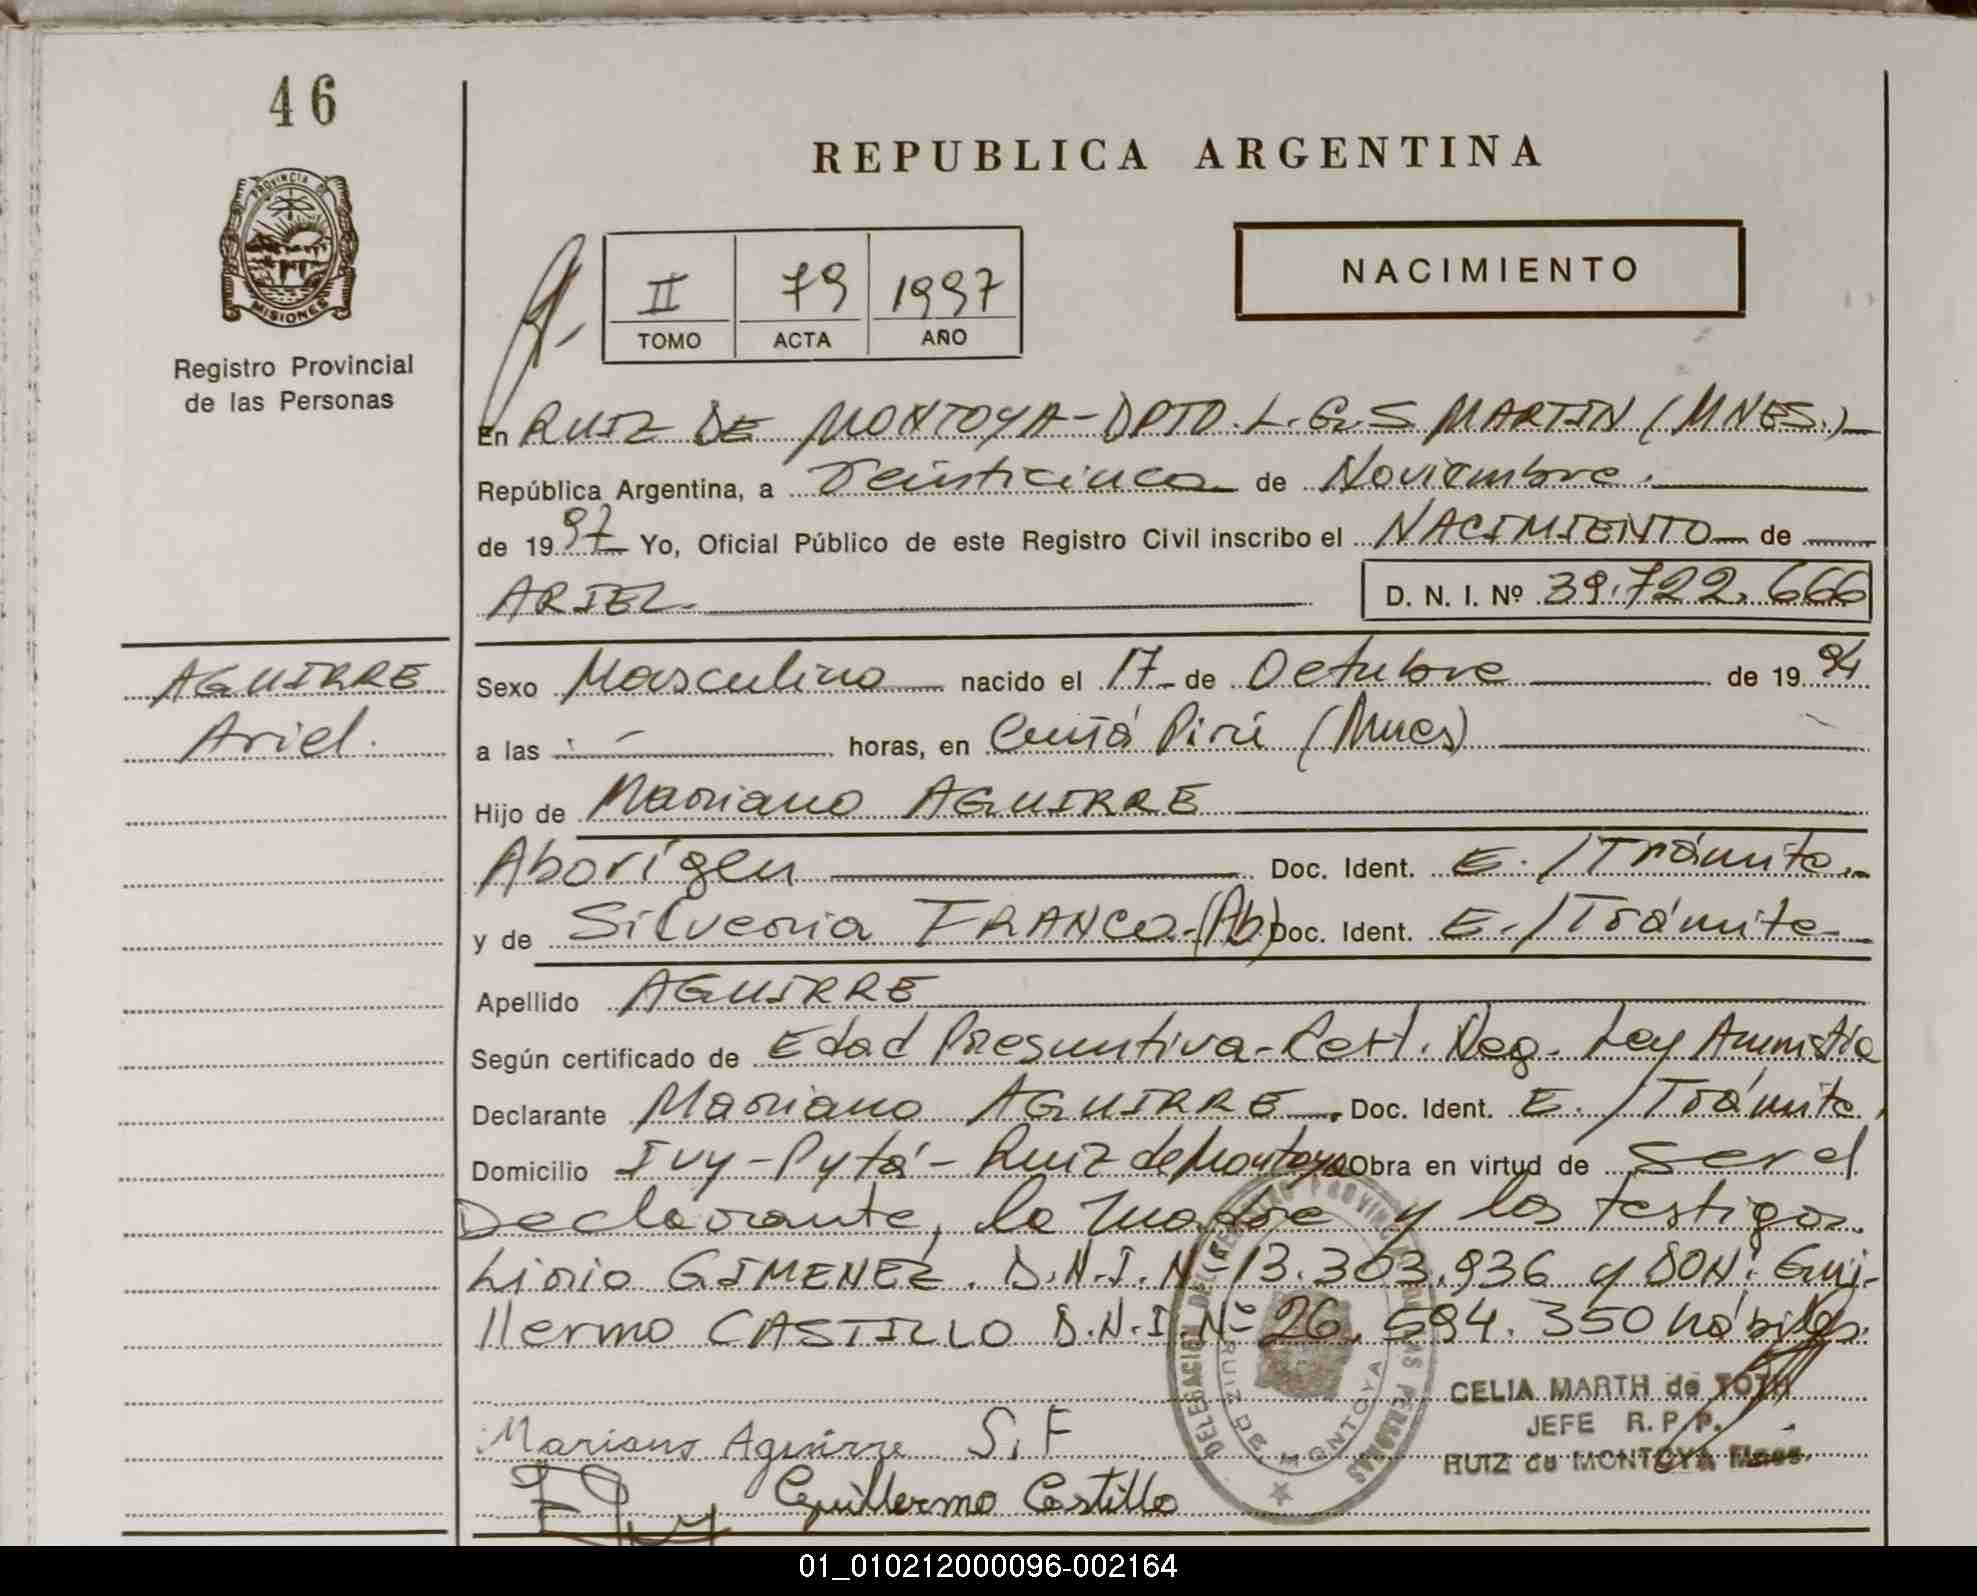 46
REPUBLICA ARGENTINA
PROVINCIA DE
MISIONES
Registro Provincial
de las Personas
II 79 1997
TOMO ACTA AÑO
NACIMIENTO
En RUIZ DE MONTOYA-DPTO.L.G.S MARTIN (MNES.)
República Argentina, a Veinticinco de Noviembre.
de 1997 Yo, Oficial Público de este Registro Civil inscribo el NACIMIENTO de
ARIEL D. N. I. Nº 39.722.666
AGUIRRE
Ariel.
Sexo Masculino nacido el 17 de Octubre de 1994
a las - horas, en Cuñá Pirú (Mnes)
Hijo de Mariano AGUIRRE
Aborígen Doc. Ident. E./Trámite.
y de Silveria FRANCO.(Ab) Doc. Ident. E./Trámite
Apellido AGUIRRE
Según certificado de Edad Presuntiva-Cert. Neg. Ley Amnistía
Declarante Mariano AGUIRRE. Doc. Ident. E./Trámite.
Domicilio Ivy-Pytá-Ruiz de Montoya Obra en virtud de ser el
Declarante, la madre y los testigos
Lirio GIMENEZ. D.N.I. Nº 13.303.936 y DON: Gui-
llermo CASTILLO D.N.I. Nº 26.594.350 hábiles.
DELEGACION DEL REGISTRO PROVINCIAL DE LAS PERSONAS
RUIZ DE MONTOYA
CELIA MARTH de TOTH
JEFE R.P.P.
RUIZ de MONTOYA Mnes.
Mariano Aguirre S.F
Guillermo Castillo
01_010212000096-002164